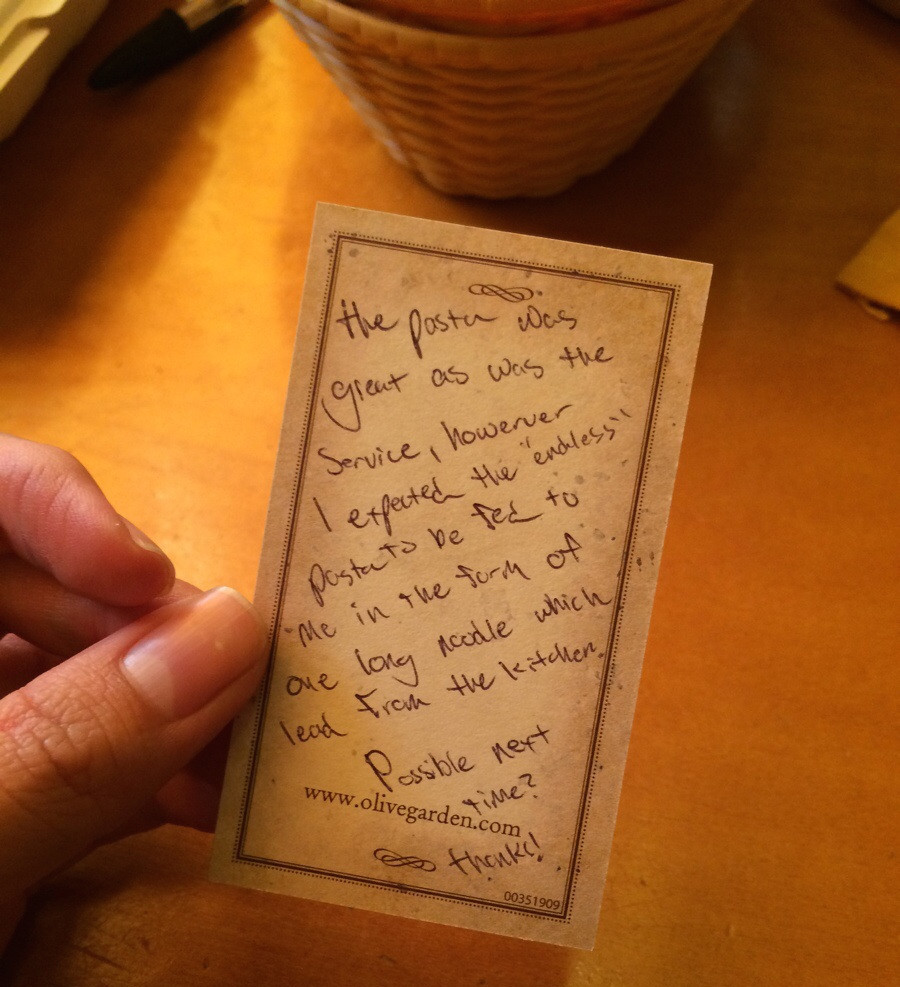 the pasta was
great as was the
Service, howerver
I expected the "endless"
pasta to be fed to
me in the form of
one long noodle which
lead from the kitchen.
Possible next
time?
www.olivegarden.com
thanks!
00351909